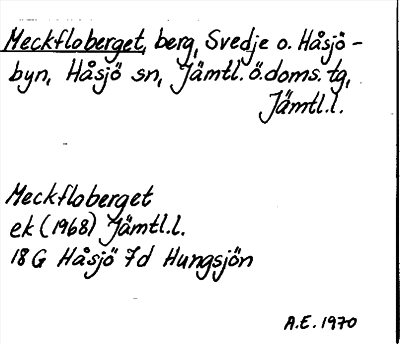 Meckfloberget, berg, Svedje o. Håsjö-
byn, Håsjö sn, Jämtl. ö. doms. tg,
Jämtl.l.
Meckfloberget
ek (1968) Jämtl.l.
18 G Håsjö 7d Hungsjön
A.E. 1970